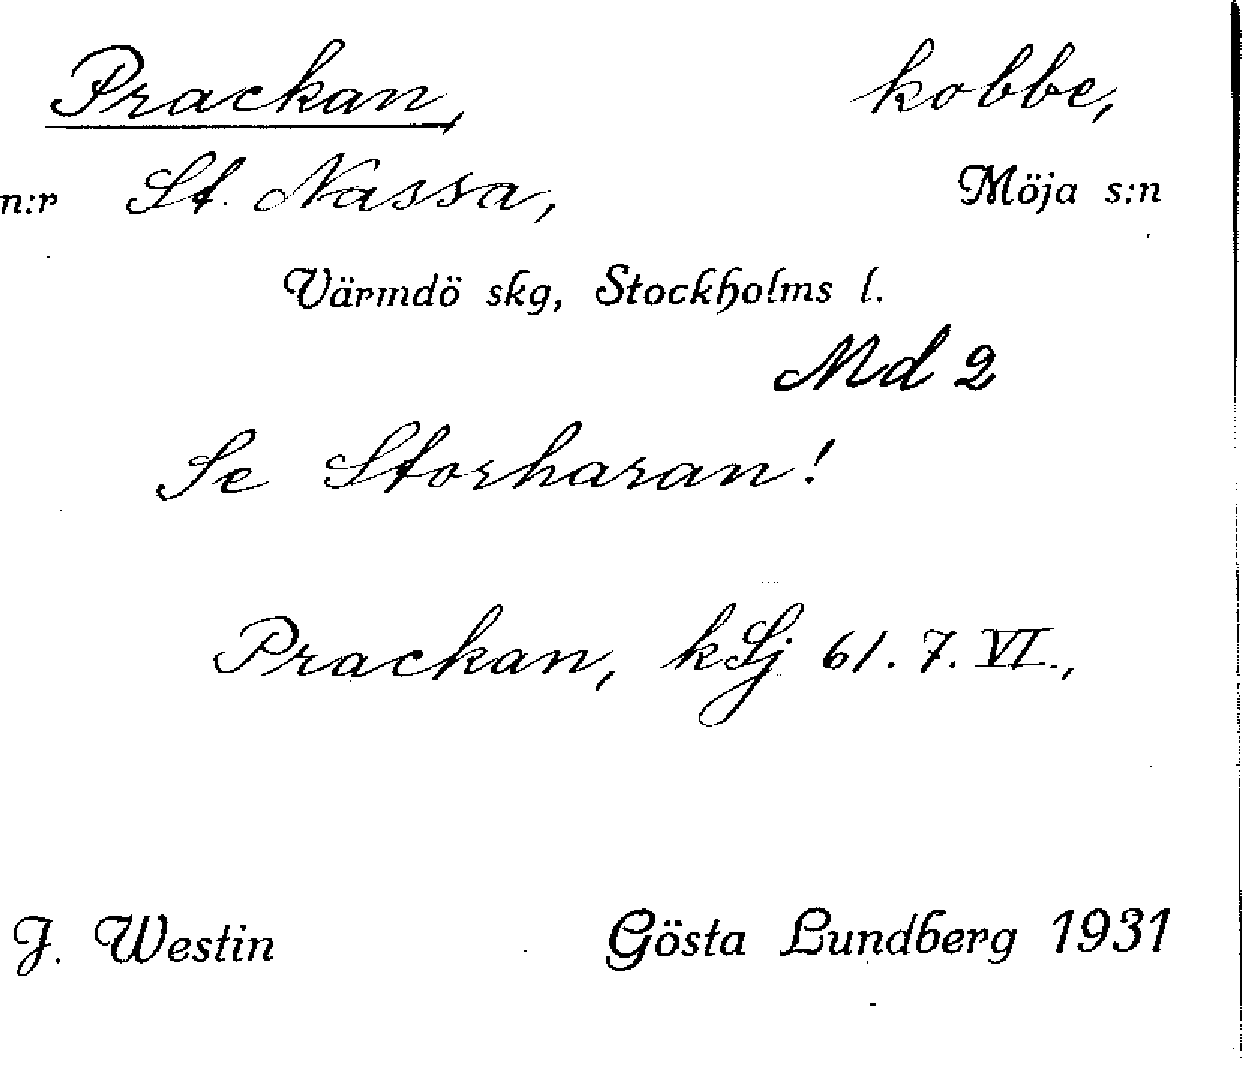 Prackan, kobbe,
n:r St. Nassa, Möja s:n
Värmdö skg, Stockholms l.
Md 2
Se Storharan!
Prackan, kSj 61. 7. VI.,
J. Westin Gösta Lundberg 1931